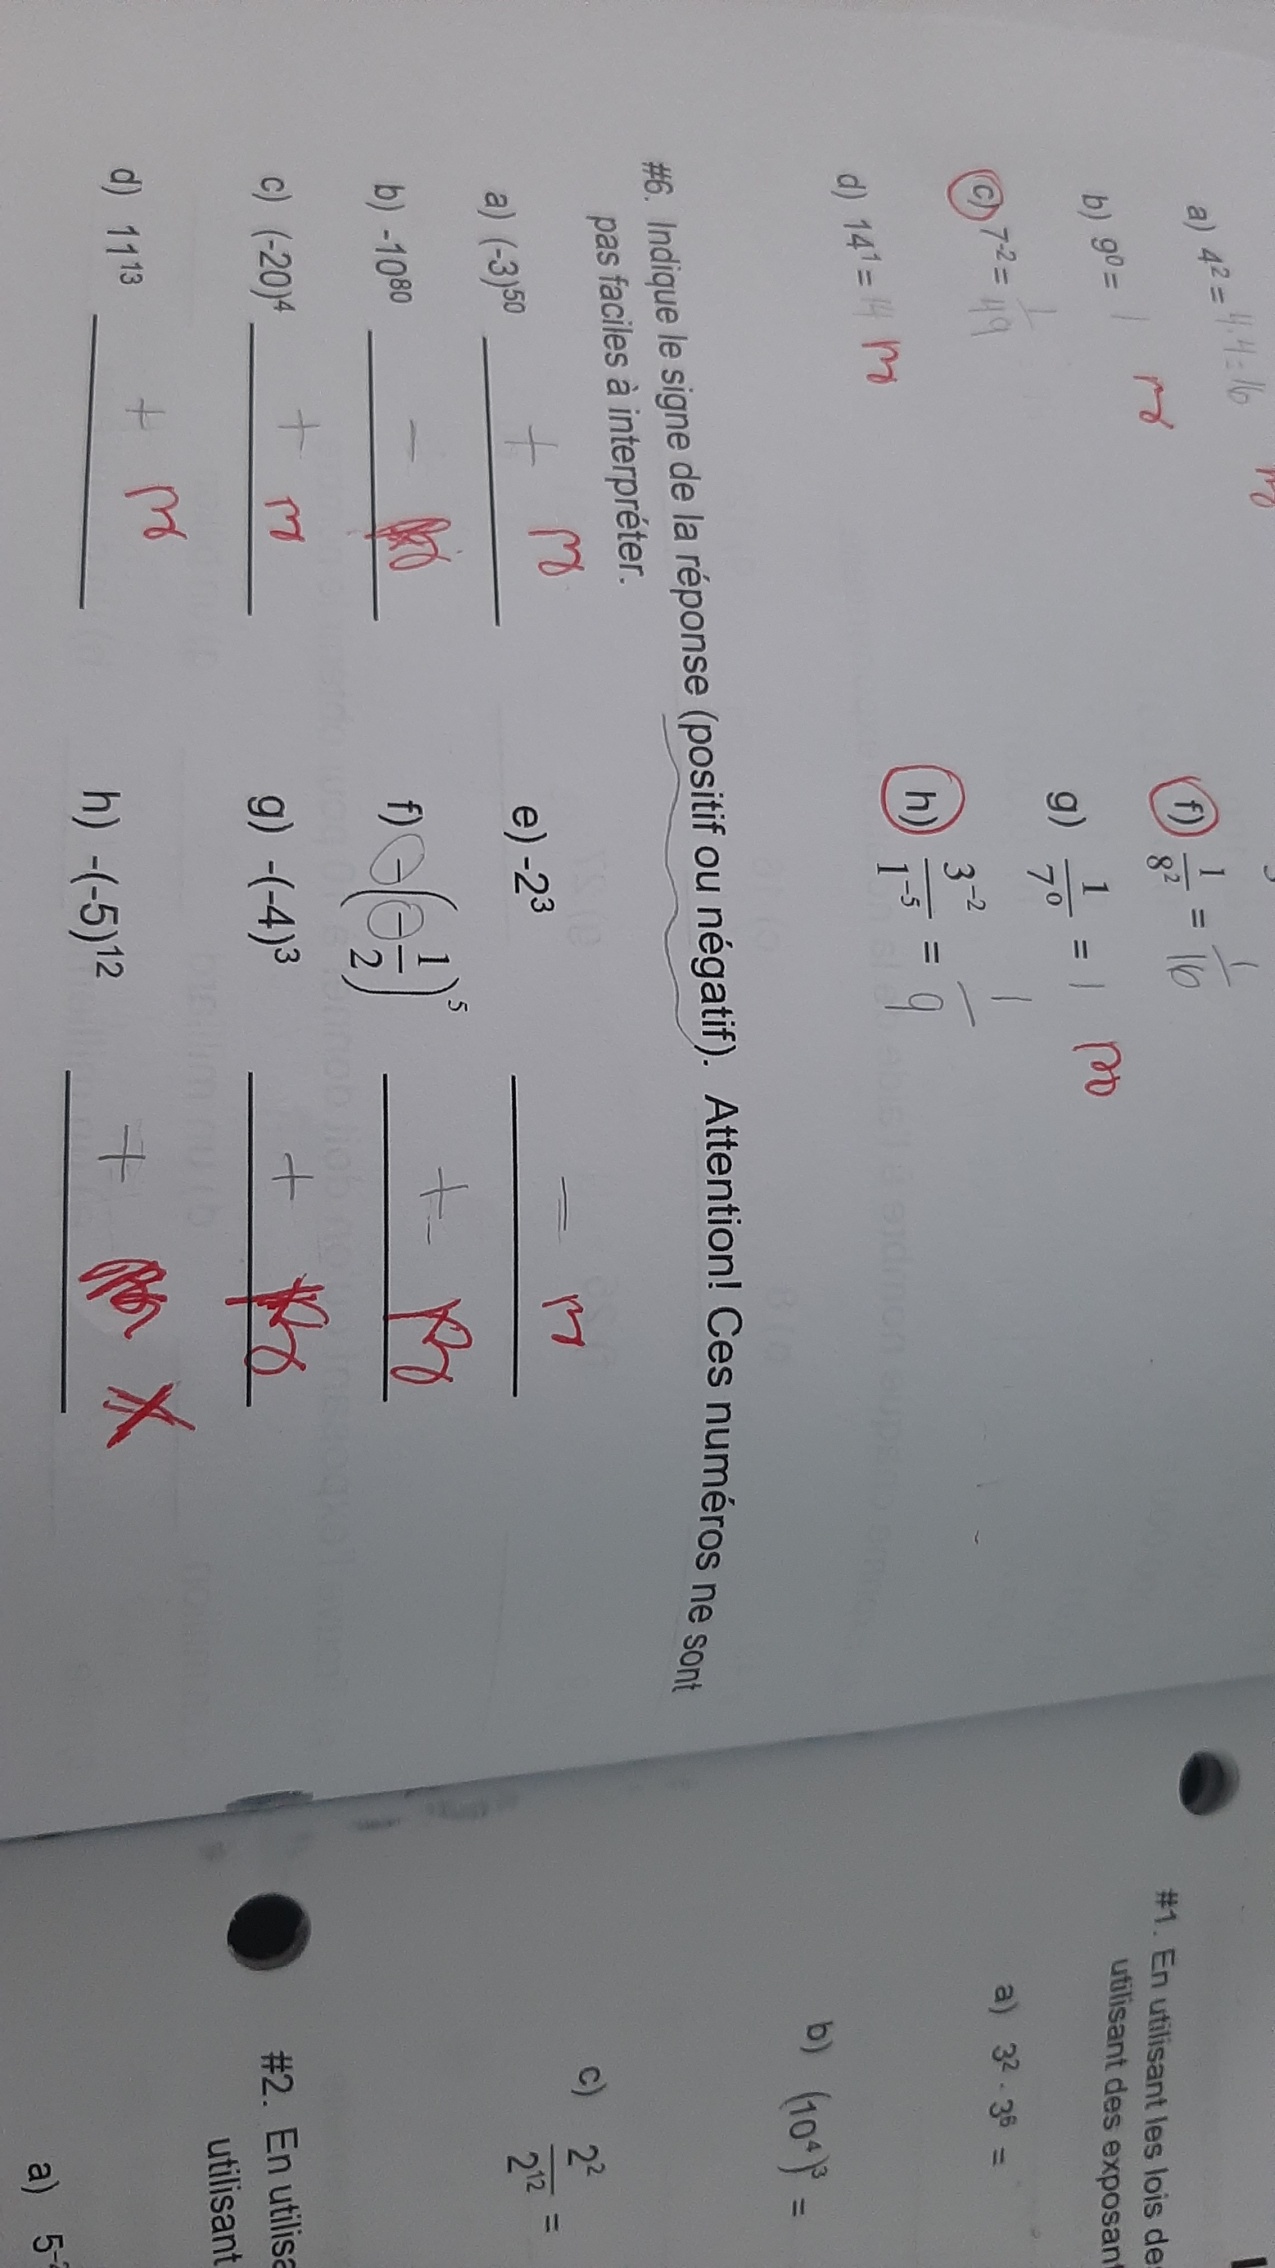 a) 4² = 4·4=16
b) 9⁰ = 1
c) 7⁻² = 1/49
d) 14¹ = 14
f) 1/8² = 1/16
g) 1/7⁰ = 1
h) 3⁻²/1⁻⁵ = 1/9
#6. Indique le signe de la réponse (positif ou négatif). Attention! Ces numéros ne sont
pas faciles à interpréter.
a) (-3)⁵⁰ +
b) -10⁸⁰ -
c) (-20)⁴ +
d) 11¹³ +
e) -2³ -
f) -(-1/2)⁵ +
g) -(-4)³ +
h) -(-5)¹² +
#1. En utilisant les lois de
utilisant des exposant
a) 3² · 3⁶ =
b) (10⁴)³ =
c) 2²/2¹² =
#2. En utilisa
utilisant
a)